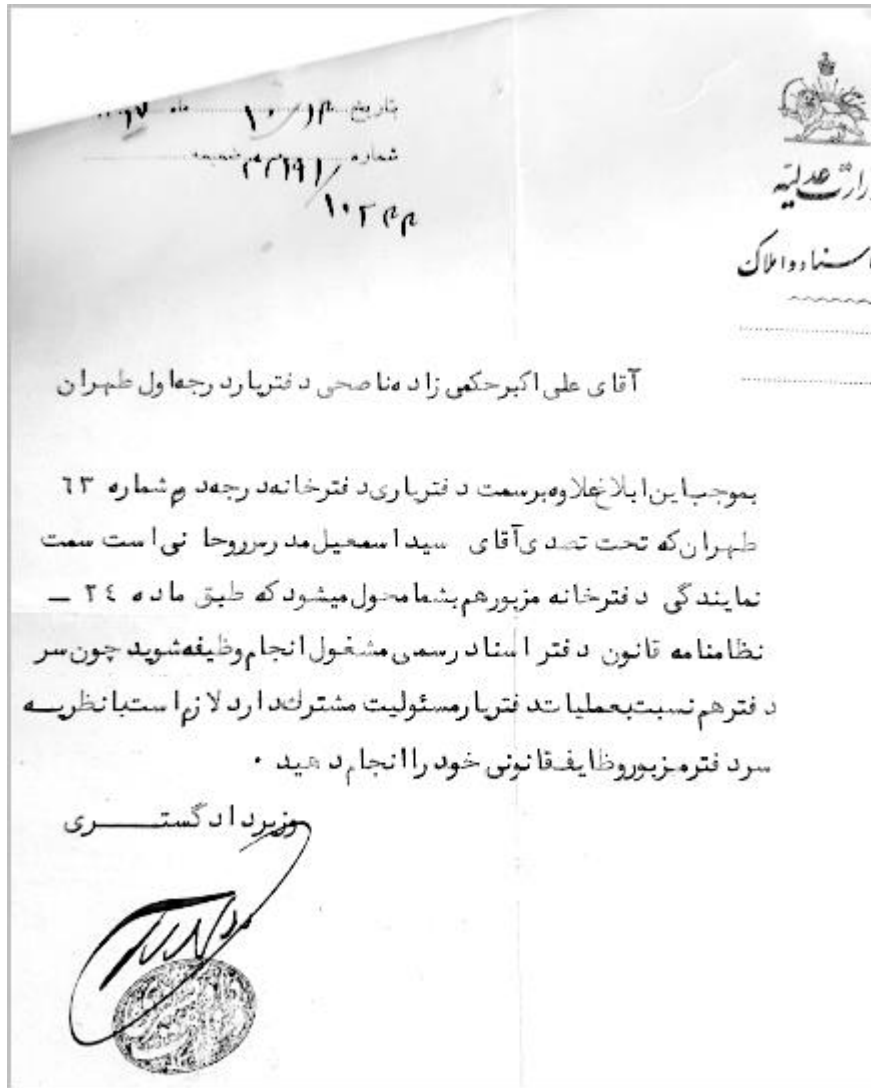 بتاریخ ۱۰ ماه ۱۷
شماره ضمیمه
وزارت عدلیه
اسناد و املاک
آقای علی اکبر حکمی زاده ناصحی دفتریار درجه اول طهران
بموجب این ابلاغ علاوه بر سمت دفتریاری دفترخانه درجه دوم شماره ٦٣
طهران که تحت تصدی آقای سید اسمعیل مدرس روحانی است سمت
نمایندگی دفترخانه مزبور هم بشما محول میشود که طبق ماده ٢٤ ـ
نظامنامه قانون دفتر اسناد رسمی مشغول انجام وظیفه شوید چون سر
دفتر هم نسبت بعملیات دفتریار مسئولیت مشترک دارد لازم است با نظریه
سردفتر مزبور وظایف قانونی خود را انجام دهید ۰
وزیر دادگستری